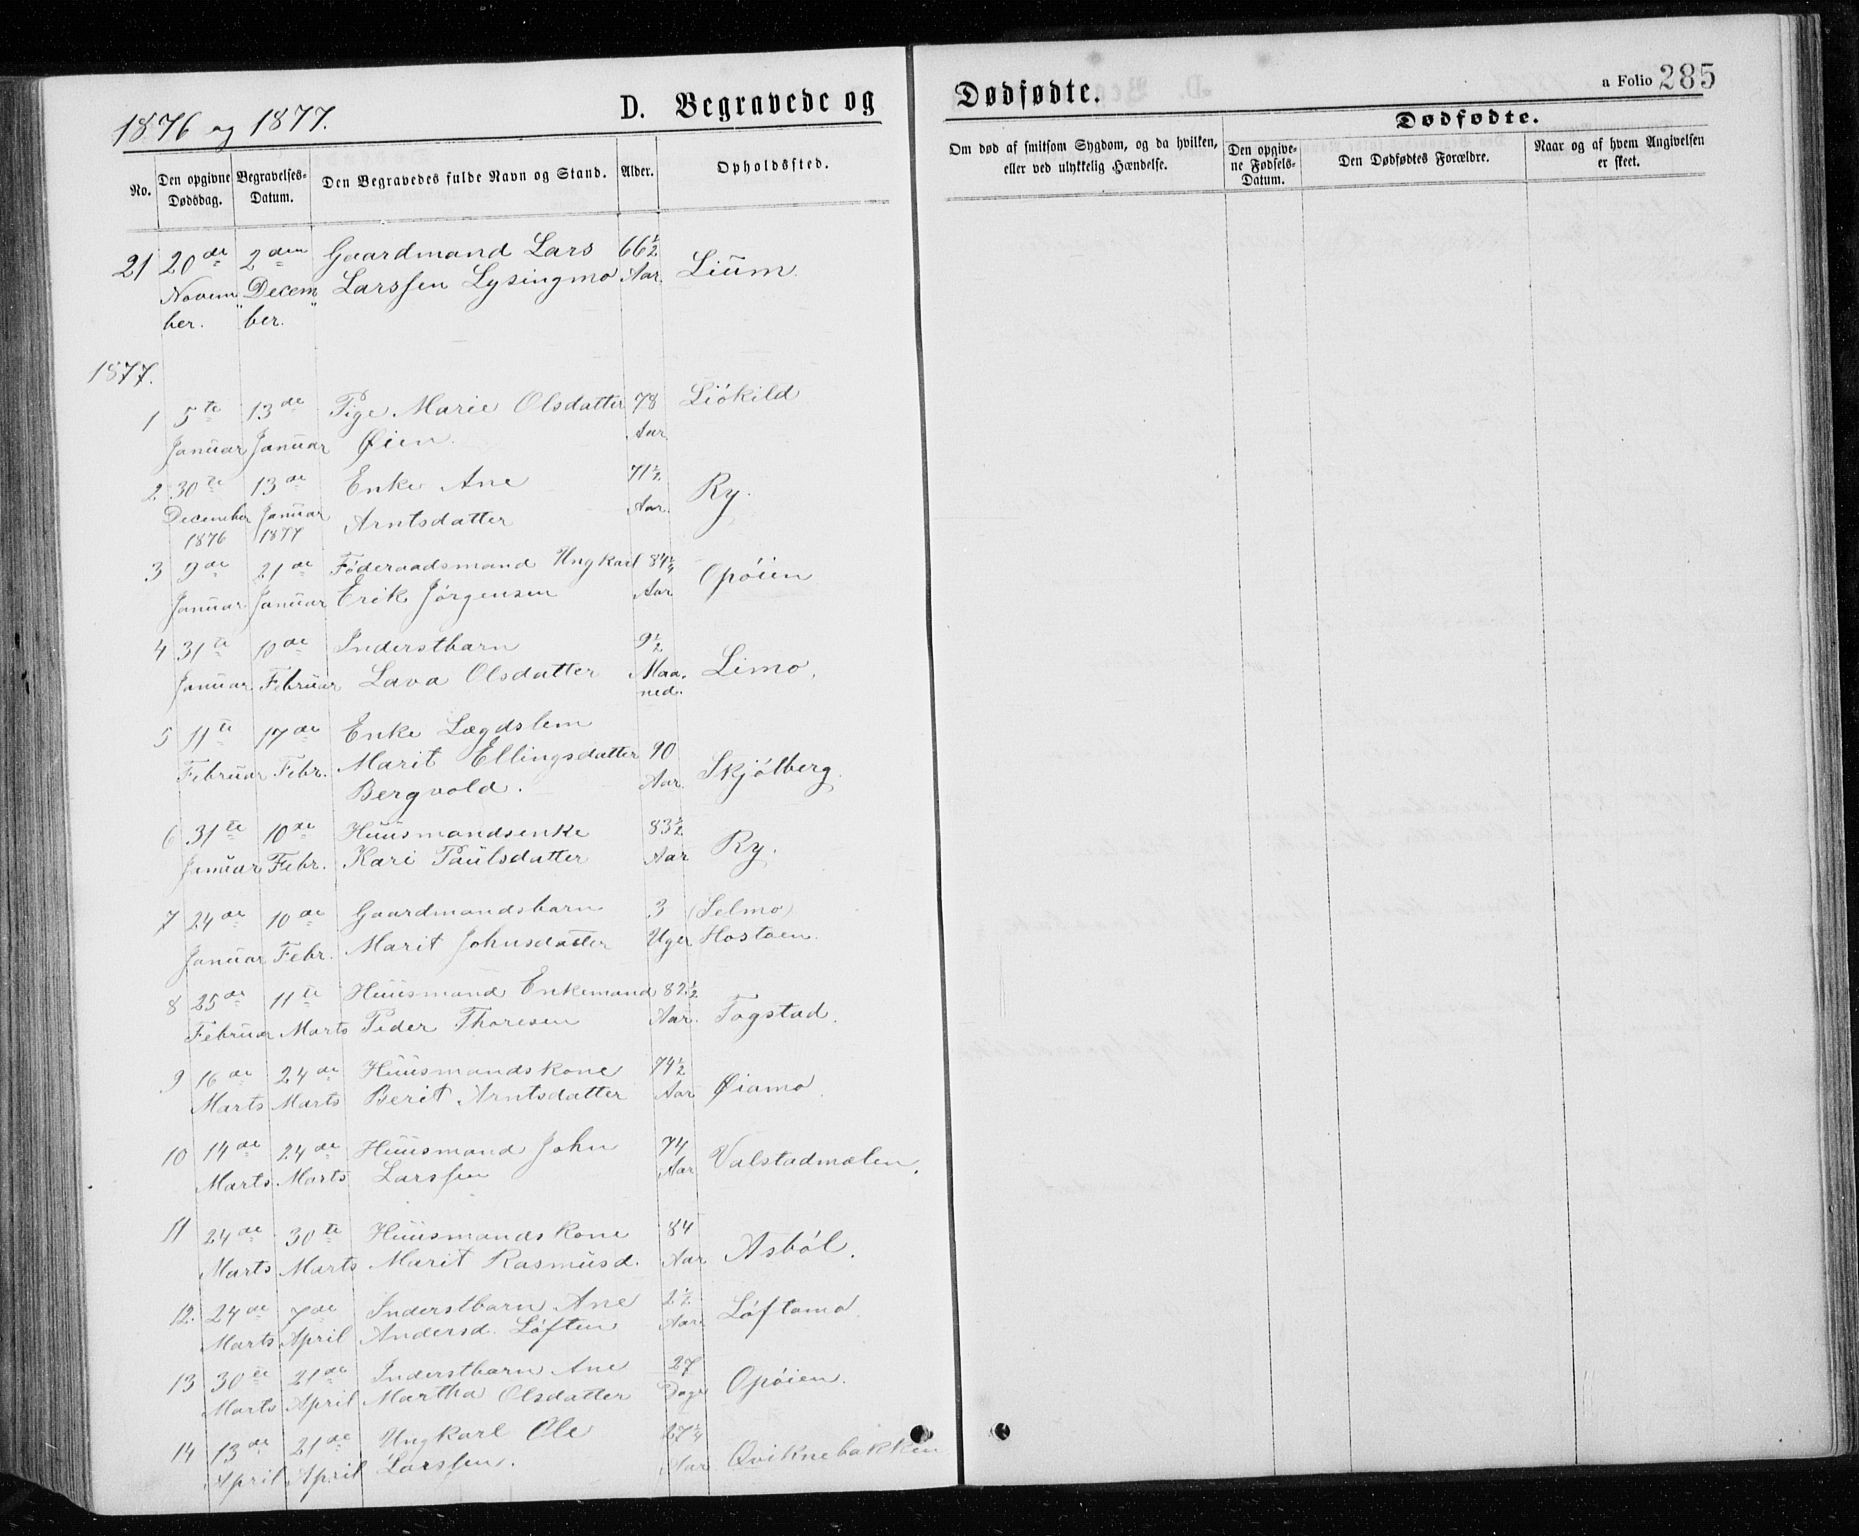 1876 og 1877.
D. Begravede og
Dødfødte.
a Folio 285
No.
Den opgivne Dødsdag.
Begravelses-Datum.
Den Begravedes fulde Navn og Stand.
Alder.
Opholdssted.
Om død af smitsom Sygdom, og da hvilken, eller ved ulykkelig Hændelse.
Dødfødte.
Den opgivne Fødsels-Datum.
Den Dødfødtes Forældre.
Naar og af hvem Angivelsen er skeet.
21 20de 2den Gaardmand Lars 66½ Lium.
Novem Decem Larssen Lysingmo Aar.
ber. ber.
1877.
1 5te 13de Pige Marie Olsdatter 78 Liökild
Januar Januar Øien. Aar
2 30te 13de Enke Ane 71½ Ry.
December Januar Arntsdatter Aar.
1876 1877
3 9de 21de Föderaadsmand Ungkarl 84¼ Opöien
Januar Januar Erik Jörgensen Aar
4 31te 10de Inderstbarn 9½ Limo.
Januar Februar Lava Olsdatter Maa-
ned.
5 11te 17de Enke Lægdslem
Februar Febr. Marit Ellingsdatter 90 Skjölberg.
Bergvold. Aar.
6 31te 10de Huusmandsenke 83½ Ry.
Januar Febr. Kari Paulsdatter Aar
7 24de 10de Gaardmandsbarn 3 (Selmo)
Januar Febr. Marit Johnsdatter Uger Hostoen.
8 25de 11te Huusmand Enkemand 82½
Februar Marts Peder Thoresen Aar. Fogstad.
9 16de 24de Huusmandskone 74½
Marts Marts Berit Arntsdatter Aar Øiamo.
10 14de 24de Huusmand John 74 Valstadmælen.
Marts Marts Larssen Aar
11 24de 30te Huusmandskone 84
Marts Marts Marit Rasmusd. Aar Asböl.
12. 24de 7de Inderstbarn Ane 2½ Löftamo.
Marts April Andersd. Löften Aar
13 30te 21de Inderstbarn Ane 27
Marts April Martha Olsdatter Dage Opöien.
14 13de 21de Ungkarl Ole 27¼
April April Larssen. Aar Qviknebakken